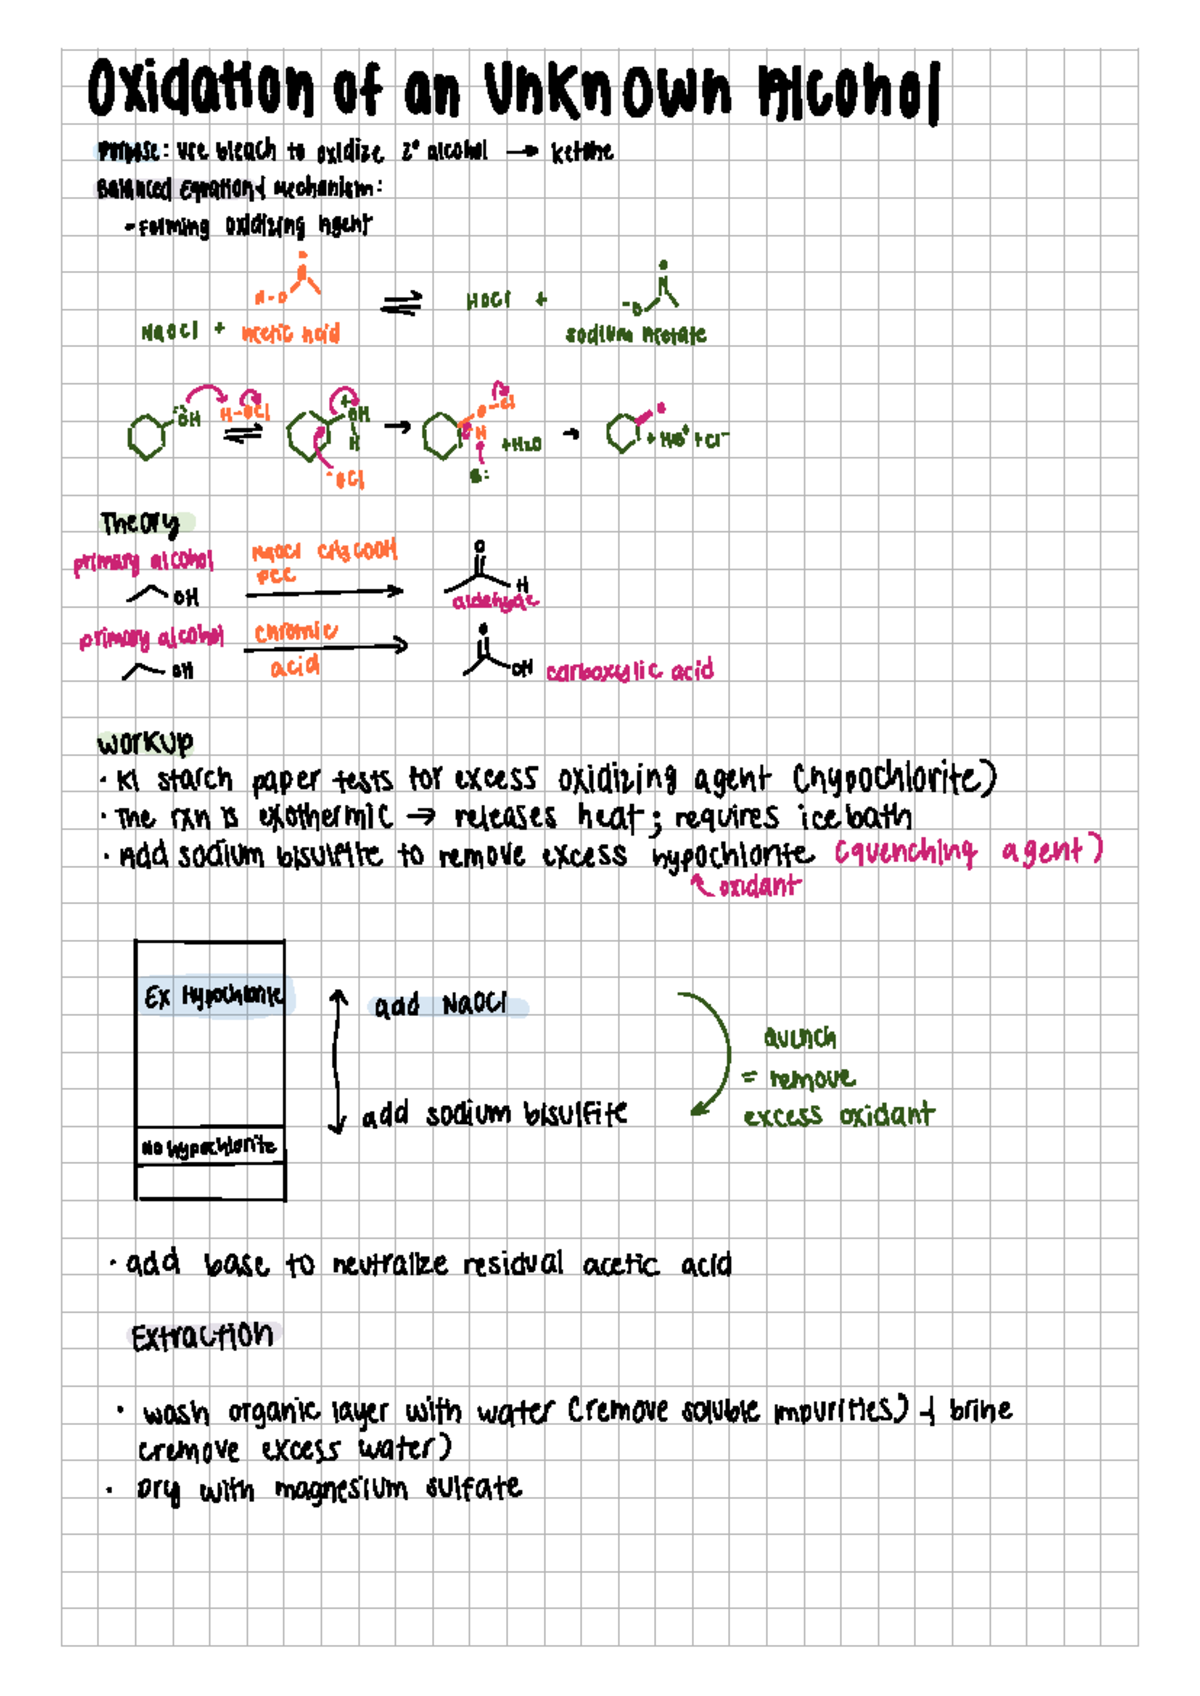 Oxidation of an Unknown Alcohol
Purpose: use bleach to oxidize 2° alcohol → ketone
Balanced Equation & Mechanism:
- Forming Oxidizing Agent
H-O
NaOCl + acetic acid ⇌ HOCl + -O
sodium acetate
OH H-OCl ⇌ + OH H → O-Cl H + H2O → + HB+ + Cl-
-OCl B:
Theory
primary alcohol NaOCl CH3COOH O
PCC
OH H
aldehyde
primary alcohol chromic
acid
OH OH carboxylic acid
Workup
· KI starch paper tests for excess oxidizing agent (hypochlorite)
· The rxn is exothermic → releases heat; requires ice bath
· Add sodium bisulfite to remove excess hypochlorite (quenching agent)
oxidant
Ex Hypochlorite
add NaOCl
quench
= remove
excess oxidant
add sodium bisulfite
No hypochlorite
· add base to neutralize residual acetic acid
Extraction
· wash organic layer with water (remove soluble impurities) & brine
(remove excess water)
· Dry with magnesium sulfate